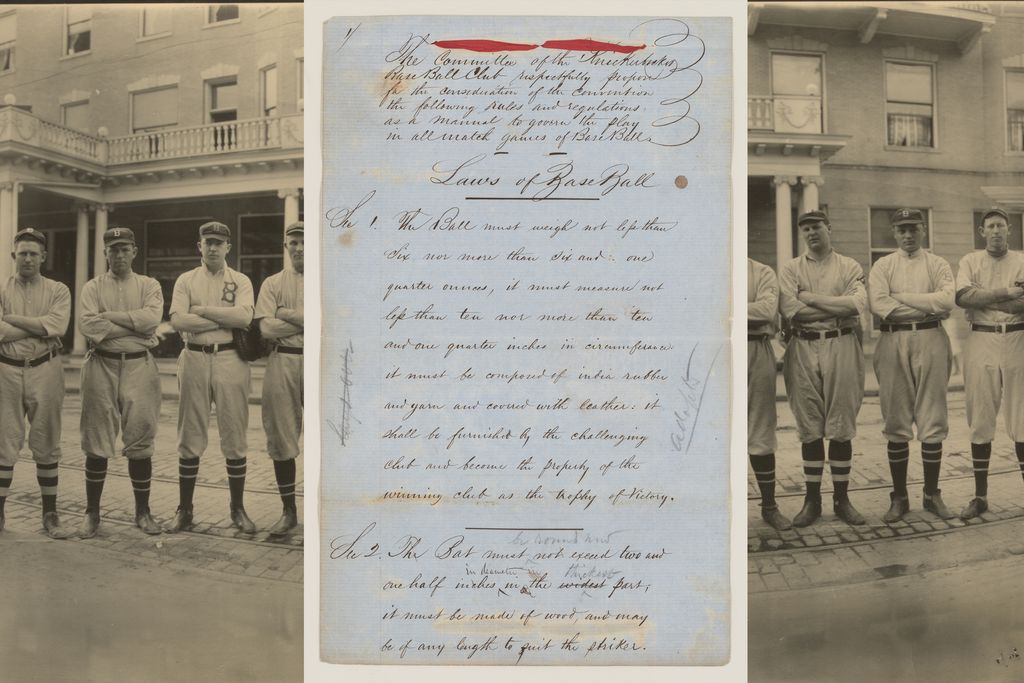 1/
The Committee of the Knickerbocker
Base Ball Club respectfully propose
for the consideration of the convention
the following rules and regulations
as a manual to govern the play
in all match games of Base Ball.
Laws of Base Ball
Sec 1. The Ball must weigh not less than
Six nor more than Six and one
quarter ounces, it must measure not
less than ten nor more than ten
and one quarter inches in circumference:
it must be composed of india rubber
and yarn and covered with leather: it
shall be furnished by the challenging
club and become the property of the
winning club as the trophy of Victory.
adopts
be round and
Sec 2. The Bat must not exceed two and
in diameter in thickest
one half inches in the widest part;
it must be made of wood, and may
be of any length to suit the striker.
B
B
B
B